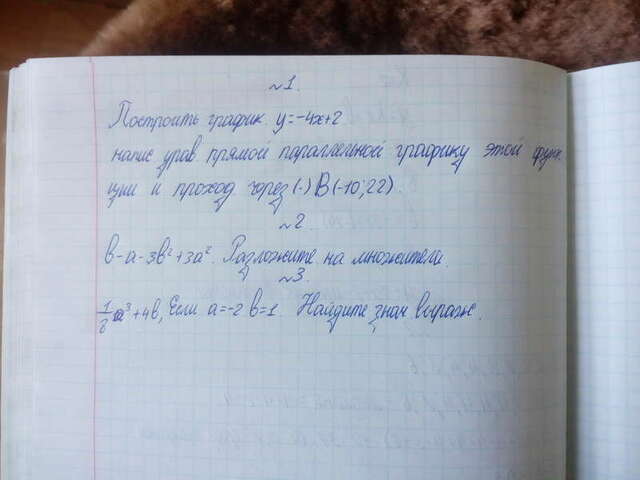 ~1.
Построить график y=-4x+2
напис урав прямой параллельной графику этой функ
ции и проход через (·) В (-10; 22).
~2.
b-a-3b²+3a². Разложите на множители.
~3.
1/8 a³+4b, Если a=-2 b=1. Найдите знач выраж.